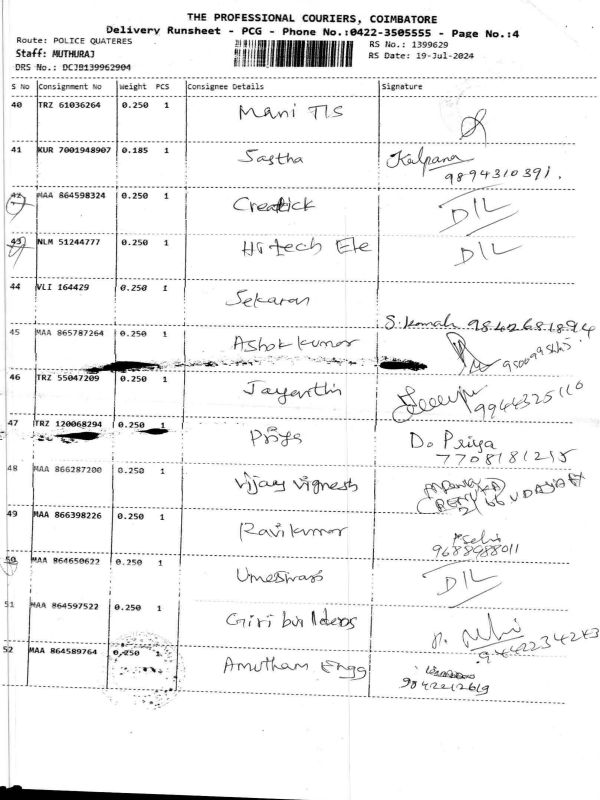 THE PROFESSIONAL COURIERS, COIMBATORE
Delivery Runsheet - PCG - Phone No.:0422-3505555 - Page No.:4
Route: POLICE QUATERES RS No.: 1399629
Staff: MUTHURAJ RS Date: 19-Jul-2024
DRS No.: DCJB139962904
S No Consignment No Weight PCS Consignee Details Signature
40 TRZ 61036264 0.250 1 Mani TIS
41 KUR 7001948907 0.185 1 Sastha Kalpana
9894310391.
42 MAA 864598324 0.250 1 Creatick D/L
43 NLM 51244777 0.250 1 Hi tech Ele D/L
44 VLI 164429 0.250 1 Sekaran
9842681894
45 MAA 865787264 0.250 1 Ashok kumar
46 TRZ 55047209 0.250 1 Jayanthi
9944325110
47 TRZ 120068294 0.250 1 Priya Do Priya
7708181215
48 MAA 866287200 0.250 1 Vijay Vignesh
49 MAA 866398226 0.250 1 Ravi kumar Selvi
9688988011
50 MAA 864650622 0.250 1 D/L
51 MAA 864597522 0.250 1 Giri builders
9442234243
52 MAA 864589764 0.250 1 Amutham Engg
9842212619